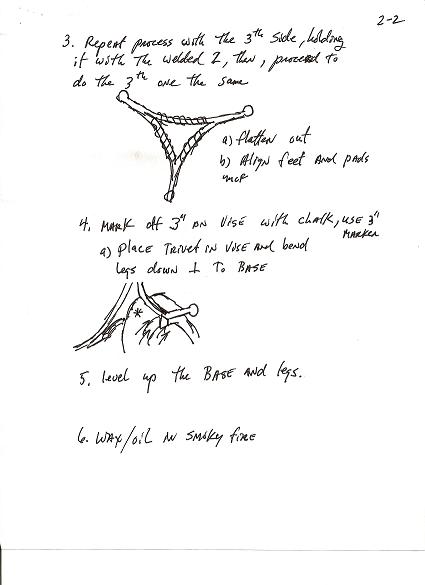 2-2
3. Repeat process with the 3th side, holding
it with the welded 2, then, proceed to
do the 3th one the same
a) flatten out
b) Align feet and pads
4. MARK off 3" on Vise with chalk, use 3"
MARKER
a) Place Trivet in vise and bend
legs down ⊥ to BASE
*
5. level up the BASE and legs.
6. WAX/oil in smoky fire